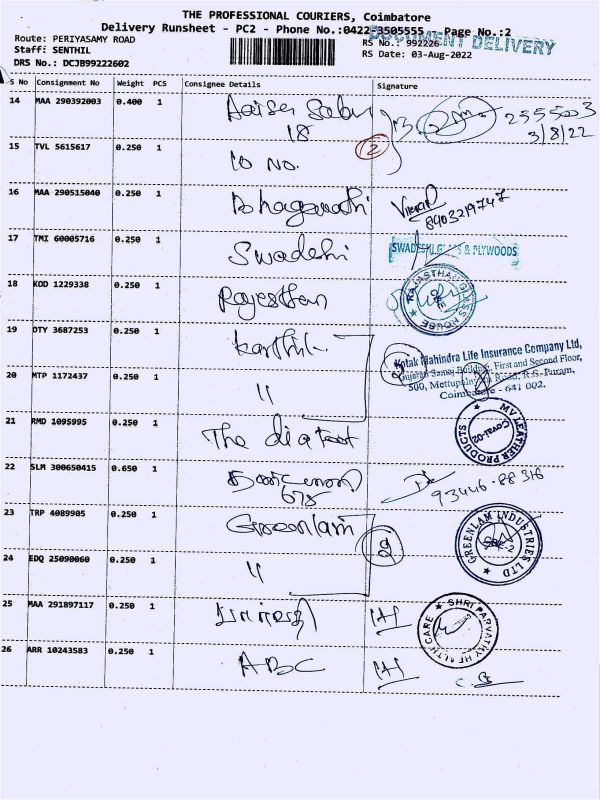 THE PROFESSIONAL COURIERS, Coimbatore
Delivery Runsheet - PC2 - Phone No.:0422-3505555 Page No.:2
DOCUMENT DELIVERY
Route: PERIYASAMY ROAD
RS No.: 992226
Staff: SENTHIL
RS Date: 03-Aug-2022
DRS No.: DCJB99222602
S No Consignment No Weight PCS Consignee Details Signature
14 MAA 290392003 0.400 1
18
2555503
3/8/22
15 TVL 5615617 0.250 1 10 No.
2
16 MAA 290515040 0.250 1 Bhagavathi
8903219747
17 TMI 60005716 0.250 1 Swadeshi SWADESHI GLASS & PLYWOODS
18 KOD 1229338 0.250 1 Rajesthan RAJASTHAN GLASS HOUSE
19 OTY 3687253 0.250 1 Karthik
Kotak Mahindra Life Insurance Company Ltd,
Gujarati Samaj Building, First and Second Floor,
500, Mettupalayam Road, R.S. Puram,
Coimbatore - 641 002.
20 MTP 1172437 0.250 1 "
21 RMD 1095995 0.250 1 The diafoot MV LEATHER PRODUCTS
22 SLM 300650415 0.650 1
675
93446-88316
23 TRP 4089905 0.250 1 Greenlam GREENLAM INDUSTRIES LTD
24 EDQ 25090060 0.250 1 "
25 MAA 291897117 0.250 1 SHRI PARVATHY HEALTH CARE
26 ARR 10243583 0.250 1 ABC